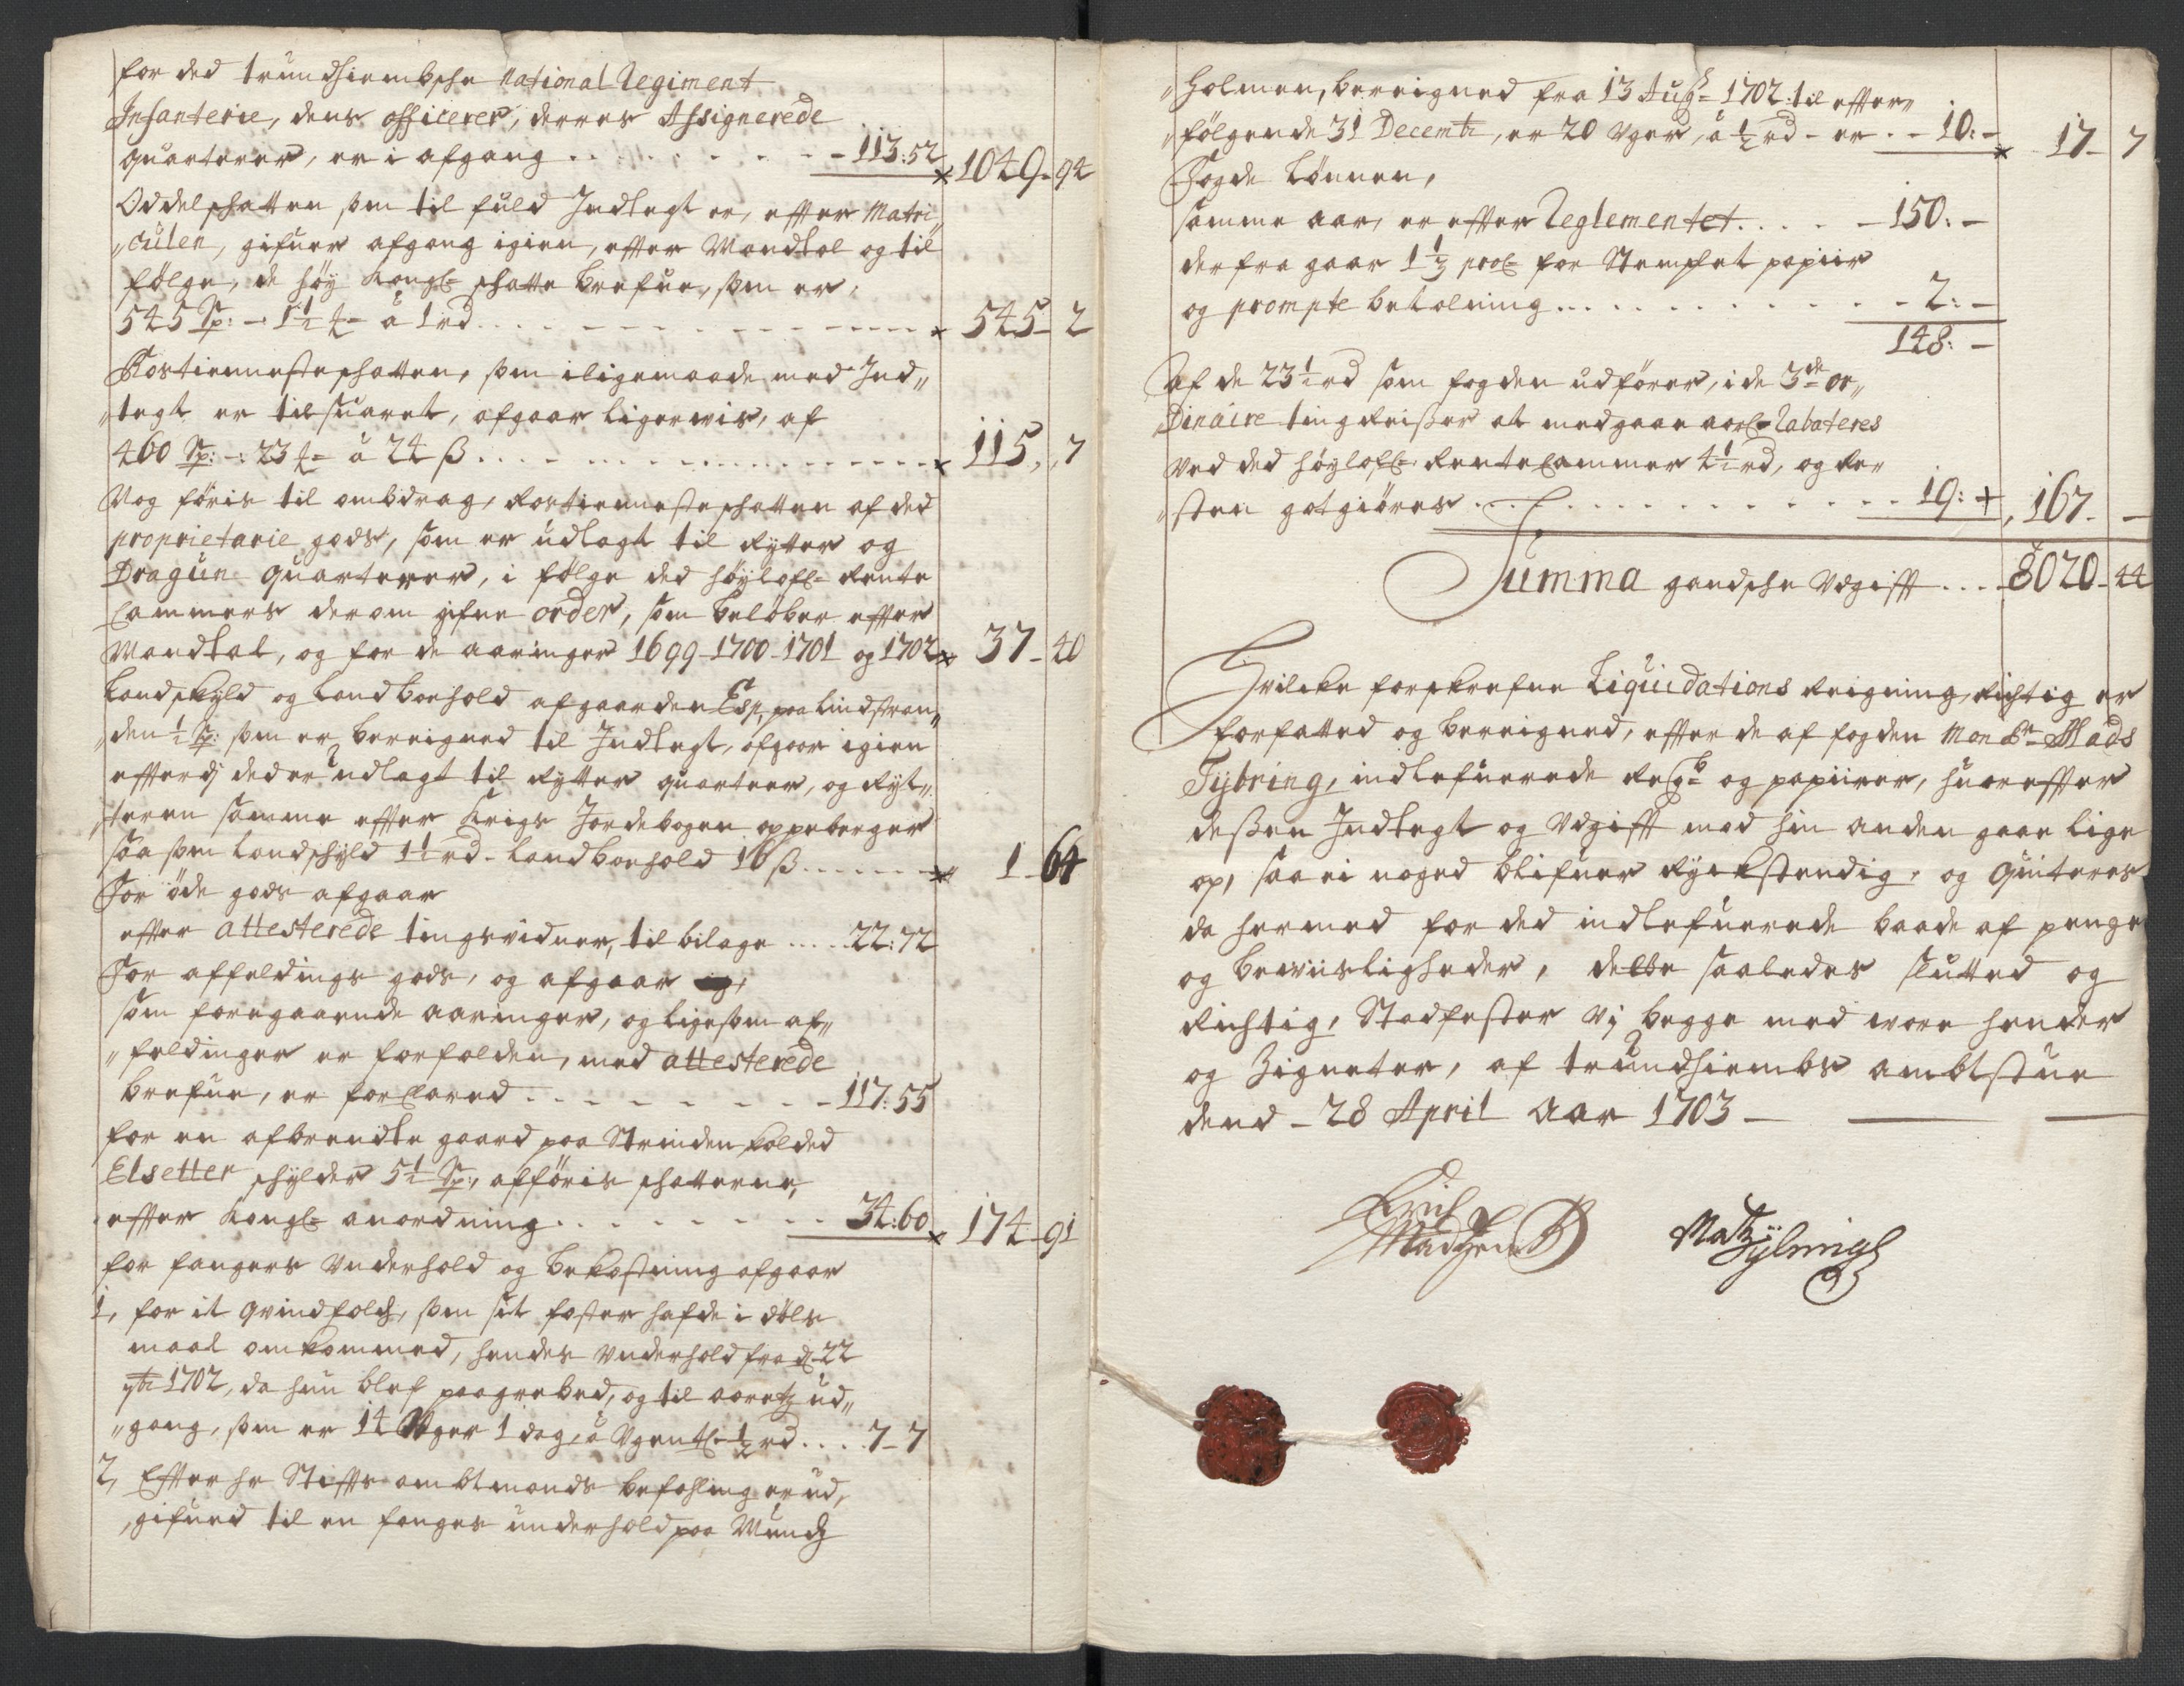 for ded trundhiembsche National Regiment
Infanterie, dens officerer, derres Assignerede
quarterer, er i afgang . . . . . . . . - 113:52 × 1049 - 94
Oddelschatten som til fuld Indtegt er, effter Matri„
„culen, gifuer afgang igien, effter Mandtal og til
følge, de høy Kongl: schatte brefue, som er,
545 Sp: - 1½ ℔ à 1 rd . . . . . . . . × 545 - 2
Rostiennesteschatten, som iligemaade med Ind„
„tegt er tilsuaret, afgaar ligerwis, af
460 Sp: -: 23 ℔ à 24 ß . . . . . . . . × 115 - 7
Nog føris til ombdrag, Rostiennesteschatten af ded
proprietarie gods, som er udlagt til Rytter og
Dragun quarterer, i følge ded høylofl: Rente
Cammers derom gifne order, som beløber effter
Mandtal, og for de aaringer 1699 - 1700 - 1701 og 1702 × 37 - 40
Landschyld og Landboehold af gaarden Esp, paa Lindstran„
„den ½ Sp: som er bereigned til Indtegt, afgaar igien
effterdj ded er udlagt til Rytter quarteer, og Ryt„
„teren samme effter Krigs Jordebogen oppeberger
saa som Landschyld 1½ rd - Landboehold 16 ß . . . . . × 1 - 64
For øde gods afgaar
effter attesterede tingsvidner, til bilage . . . . 22:72
For affeldings gods, og afgaar
som foregaaende aaringer, og ligesom af„
„feldinger er forfalden, med attesterede
brefue, er forklared . . . . . . . . - 117:55
for en afbrendte gaard paa Strinden kalded
Elsetter schylder 5½ Sp:, afføris schatterne,
effter Kongl: anordning . . . . . . . . 34:60 × 174 - 91
for fangers Underhold og bekostning afgaar
1, for it qvindfolch, som sit foster hafde i døls
maal omkommed, hendes Underhold fra d 22
7br 1702, da hun blef paagrebed, og til aaretz ud„
„gang, som er 14 Uger 1 dag, à Ugentl: ½ rd . . . . 7 - 7
2, Effter hr Stiffts ambtmands befahling er ud„
„gifued til en fanges underhold paa Munch
„holmen, bereigned fra 13 Augs: 1702: til effter„
„følgende 31 Decembr, er 20 Uger, à ½ rd - er . . - 10: - × 17 - 7
Fogde Lønnen,
samme aar, er effter Reglementet . . . . - 150: -
derfra gaar 1⅓ procto for Stemplet papiir
og prompte betalning . . . . . . . . - 2: -
148: -
Af de 23½ rd som fogden udfører, i de 3de or„
Dinaire ting Reisser at medgaae aarl: Rabateres
ved ded høylofl: Rente Cammer 4½ rd, og Re„
„sten gotgiøres . . . . . . . . . . 19: + 167 - -
Summa gandsche Udgifft . . . 8020 - 44
Hvilcke forschrefne Liquidations Reigning, Richtig er
forfatted og bereigned, effter de af fogden Monsr Mads
Tybring, indlefuerede Regsb: og papiirer, huoreffter
dessen Indtegt og Udgifft med hin anden gaar lige
op, saa ei noged blifuer Ryckstendig, og quiteres
da hermed for ded indlefuerede baade af penge
og bewiisligheder, dette saaledes slutted og
Richtig, Stadfester vj begge med wore hender
og Zigneter, af trundhiembs ambtstue
dend - 28 April Aar 1703 -